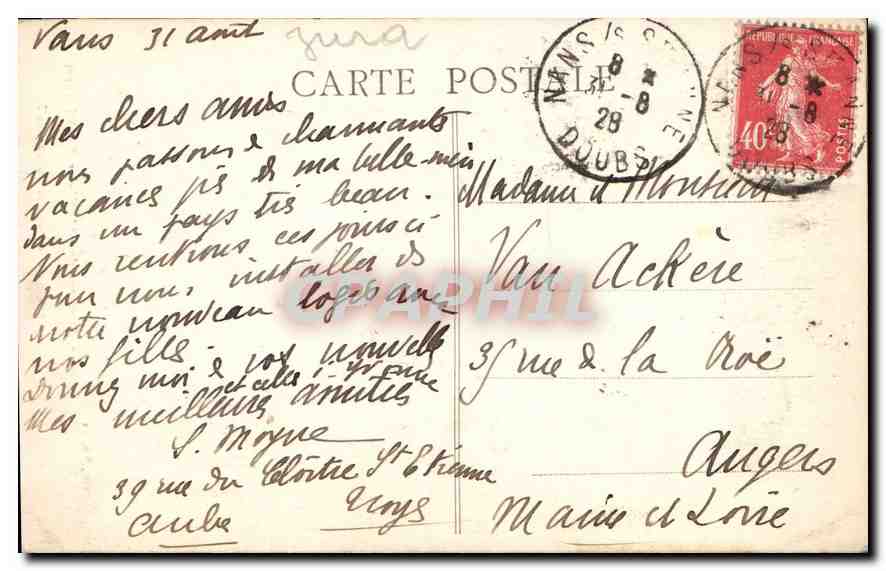 Nans 31 aout
Jura
CARTE POSTALE
NANS /S STE ANNE
8 *
31 -8
28
DOUBS
REPUBLIQUE FRANÇAISE
40c
POSTES
Mes chers amis
nous passons de charmantes
vacances près de ma belle-mère
dans un pays très beau.
Nous rentrons ces jours ci
pour nous installer ds
notre nouveau logis avec
nos filles.
Donnez moi de vos nouvelles
et celles d'Yvonne
Mes meilleures amitiés
S. Moyne
39 rue du Cloître St Etienne
Troyes
Aube
Madame et Monsieur
Van Ackère
35 rue de la Roë
Angers
Maine et Loire
CPAPHIL